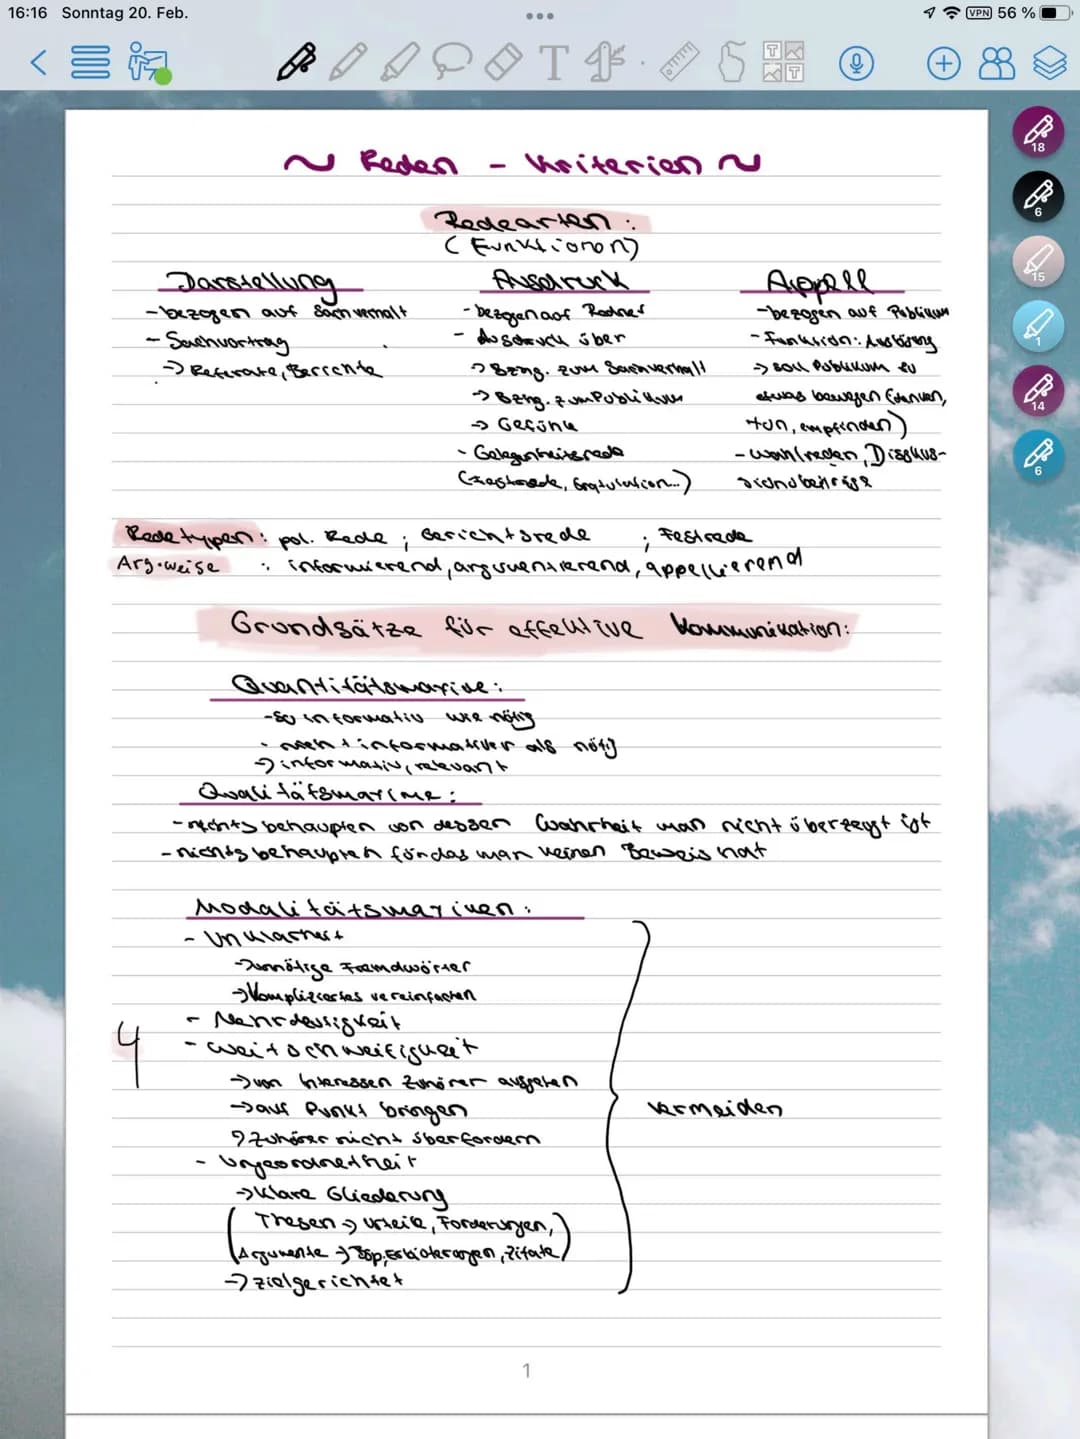 16:16 Sonntag 20. Feb.
VPN 56 %
~ Reden - Kriterien ~
18
6
15
1
14
6
Redearten:
(Funktionen)
Darstellung
- bezogen auf Sachverhalt
- Sachvortrag
-> Referate, Berichte
Ausdruck
- bezogen auf Redner
- Ausdruck über
-> Bzng. zum Sachverhalt
-> Bzng. zum Publikum
-> Gefühle
- Gelegenheitsrede
(Festrede, Gratulation...)
Appell
- bezogen auf Publikum
- Funktion: Auslösung
-> soll Publikum zu
etwas bewegen (denken,
tun, empfinden)
- Wahlreden, Diskus-
sionsbeiträge
Redetypen: pol. Rede ; Gerichtsrede ; Festrede
Arg.weise : informierend, argumentierend, appellierend
Grundsätze für effektive Kommunikation:
Quantitätsmaxime:
- so informativ wie nötig
- nicht informativer als nötig
-> informativ, relevant
Qualitätsmaxime:
- nichts behaupten von dessen Wahrheit man nicht überzeugt ist
- nichts behaupten für das man keinen Beweis hat
Modalitätsmaximen:
- Unklarheit
-> unnötige Fremdwörter
-> Kompliziertes vereinfachen
- Mehrdeutigkeit
4
- Weitschweifigkeit
-> von Interessen Zuhörer ausgehen
-> auf Punkt bringen
vermeiden
-> Zuhörer nicht überfordern
- Ungeordnetheit
-> Klare Gliederung
(Thesen -> Urteile, Forderungen,
Argumente -> Bsp, Erläuterungen, Zitate)
-> zielgerichtet
1